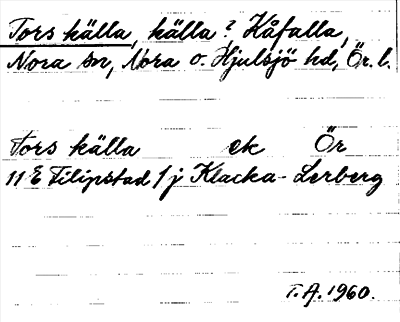 Tors källa, källa? Kåfalla,
Nora sn, Nora o. Hjulsjö hd, Ör. l.
Tors källa ek Ör
11 E Filipstad 1 j Klacka-Lerberg
T.A. 1960.